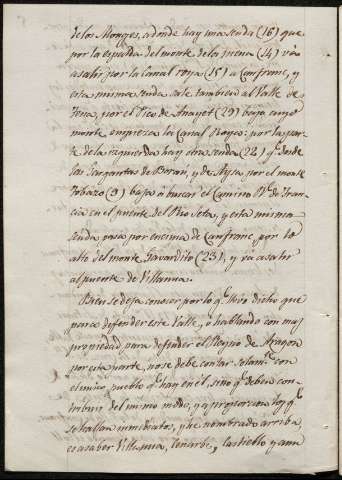 de los Monges, adonde hay una senda (16) que
por la espalda del monte de la pena (14) vá
a salir por la Canal roya (15) a Canfranc, y
esta misma senda sale tambien al Valle de
Tena, por el Pico de Anayet (29) bajo cuyo
monte empieza la Canal Roya: por la par
te de la izquierda hay otra senda (22) q.e desde
las Gargantas de Borau, y de Aysa por el monte
Tobazo (9) baja á buscar el Camino R.l de Fran
cia en el puente del Rio Seta, y esta misma
senda pasa por encima de Canfranc, por lo
alto del monte Gavardito (23), y vá a salir
al puente de Villanua.
Bien se deja conocer por lo q.e llevo dicho que
para defender este Valle, ó hablando con mas
propiedad para defender el Reyno de Aragon
por esta parte, no se debe contar solam.te con
el unico pueblo q.e hay en él, sino q.e deben con
tribuir del mismo modo, y a proporcion los q.e
se hallan inmediatos, y he nombrado arriba,
es a saber Villanua, Cenarbe, Castiello y aun